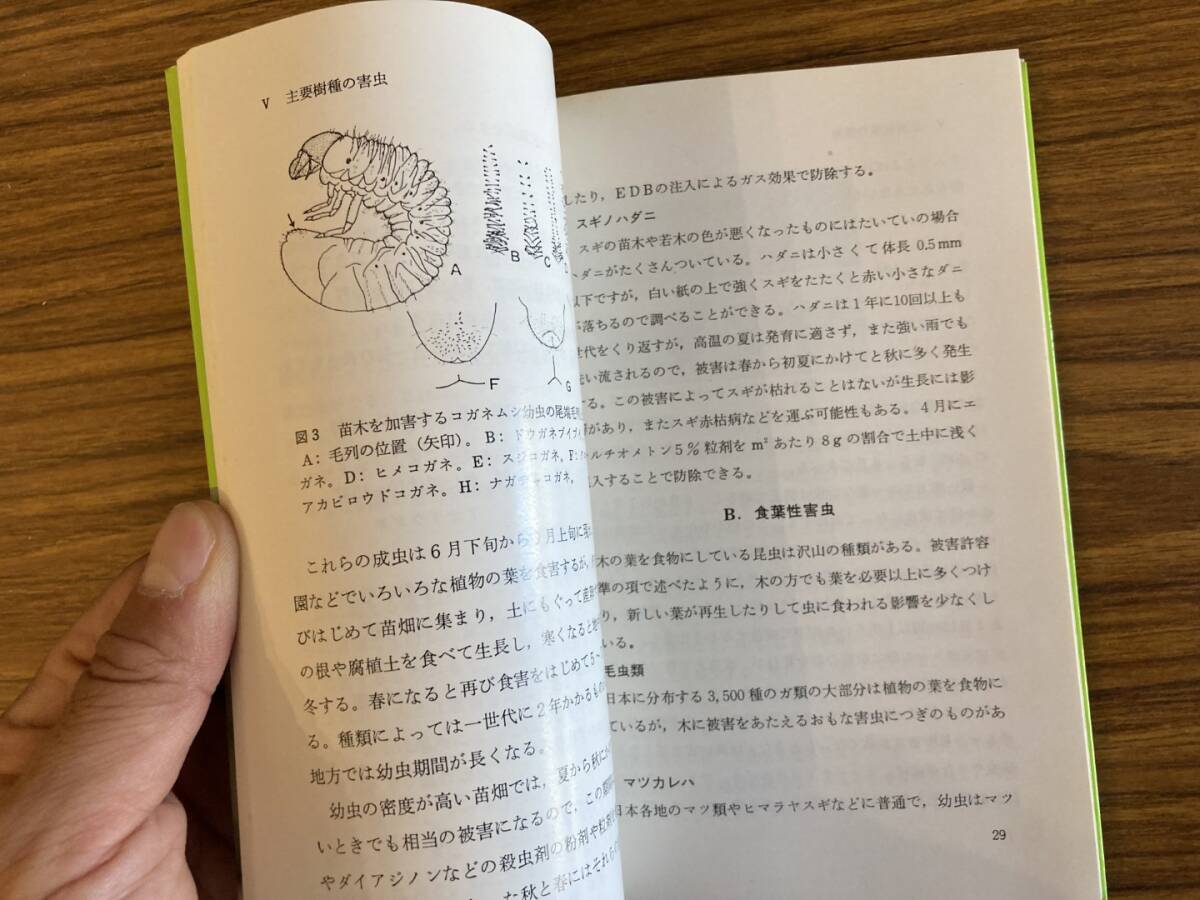 V 主要樹種の害虫
A
B
C
F
G
図3 苗木を加害するコガネムシ幼虫の尾端毛列
A:毛列の位置(矢印)。B:ドウガネブイブイ
ガネ。D:ヒメコガネ。E:スジコガネ。F:
アカビロウドコガネ。H:ナガチャコガネ,
これらの成虫は6月下旬から 月上旬に
園などでいろいろな植物の葉を食害するが,
びはじめて苗畑に集まり,土にもぐって産
の根や腐植土を食べて生長し,寒くなると
冬する。春になると再び食害をはじめて5~
る。種類によっては一世代に2年かかるもの
地方では幼虫期間が長くなる。
幼虫の密度が高い苗畑では,夏から秋に
いときでも相当の被害になるので,この
やダイアジノンなどの殺虫剤の粉剤や粒剤
た秋と春にはそれら
したり,EDBの注入によるガス効果で防除する。
スギノハダニ
スギの苗木や若木の色が悪くなったものにはたいていの場合
ハダニがたくさんついている。ハダニは小さくて体長0.5mm
以下ですが,白い紙の上で強くスギをたたくと赤い小さなダニ
が落ちるので調べることができる。ハダニは1年に10回以上も
世代をくり返すが,高温の夏は発育に適さず,また強い雨でも
洗い流されるので,被害は春から初夏にかけてと秋に多く発生
する。この被害によってスギが枯れることはないが生長には影
響があり,またスギ赤枯病などを運ぶ可能性もある。4月にエ
ルチオメトン5%粒剤をm²あたり8gの割合で土中に浅く
入することで防除できる。
B. 食葉性害虫
木の葉を食物にしている昆虫は沢山の種類がある。被害許容
準の項で述べたように,木の方でも葉を必要以上に多くつけ
り,新しい葉が再生したりして虫に食われる影響を少なくし
いる。
毛虫類
日本に分布する3,500種のガ類の大部分は植物の葉を食物に
ているが,木に被害をあたえるおもな害虫につぎのものがあ
マツカレハ
日本各地のマツ類やヒマラヤスギなどに普通で,幼虫はマツ
29